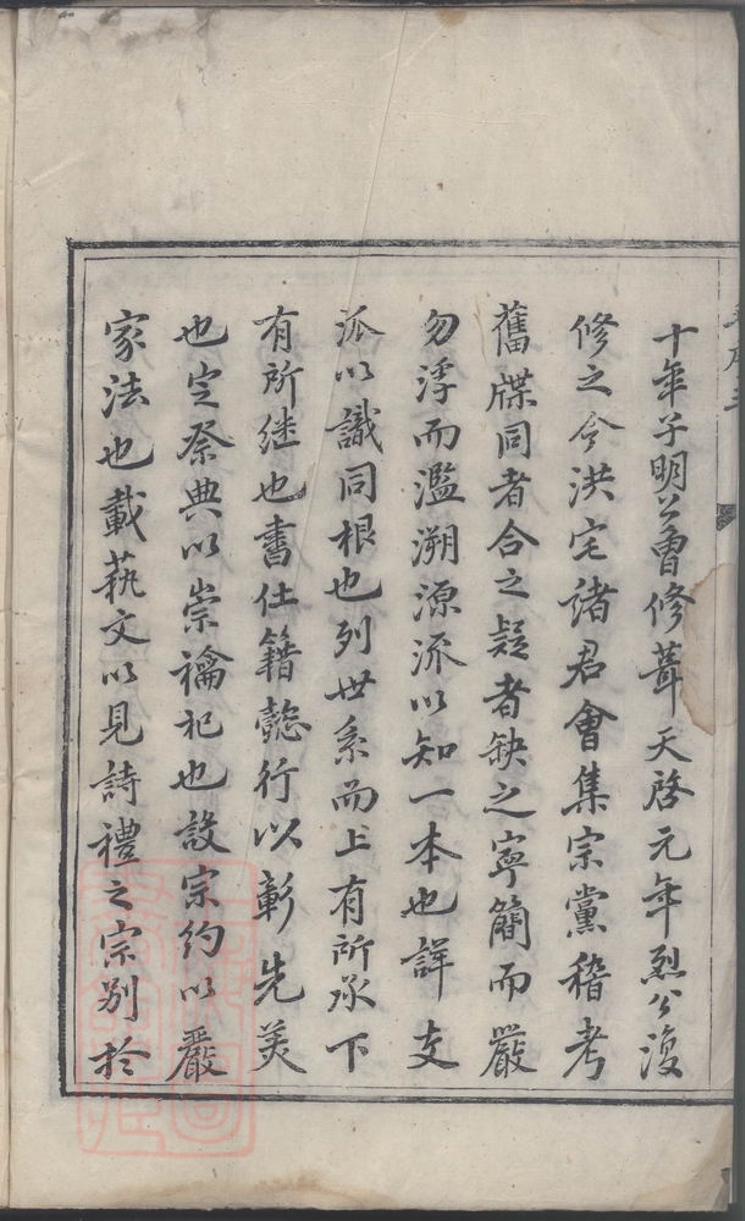 十年子明公曾修葺天啓元年烈公復
修之今洪宅諸君會集宗黨稽考
舊牒同者合之疑者缺之寧簡而嚴
勿浮而濫溯源流以知一本也詳支
派以識同根也列世系而上有所承下
有所继也書仕籍懿行以彰先美
也定祭典以崇禴祀也設宗約以嚴
家法也載萟文以見詩禮之宗别於